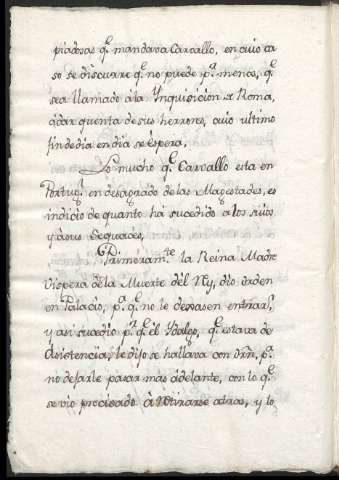 piadosas q.e mandava Carvallo, en cuio ca
so se discurre q.e no puede p.r menos, q.e
sea llamado a la Ynquisicion de Roma,
a dar quenta de sus herrores, cuio ultimo
fin de dia en dia se espera.
Lo mucho q.e Carvallo esta en
Portug.l en desagrado de las Magestades, es
indicio de quanto há sucedido a los suios
y a sus Sequaces.
Primeram.te la Reina Madre
Vispera de la Muerte del Rey, dio orden
en Palacio, p.a q.e no le dexasen entrar,
y asi sucedio p.r q.e el Ydalgo, q.e estava de
Asistencia, le dijo se hallava con orñ, p.a
no dejarle pasar mas adelante, con lo q.e
se vio precisado à retirarse atras, y lo